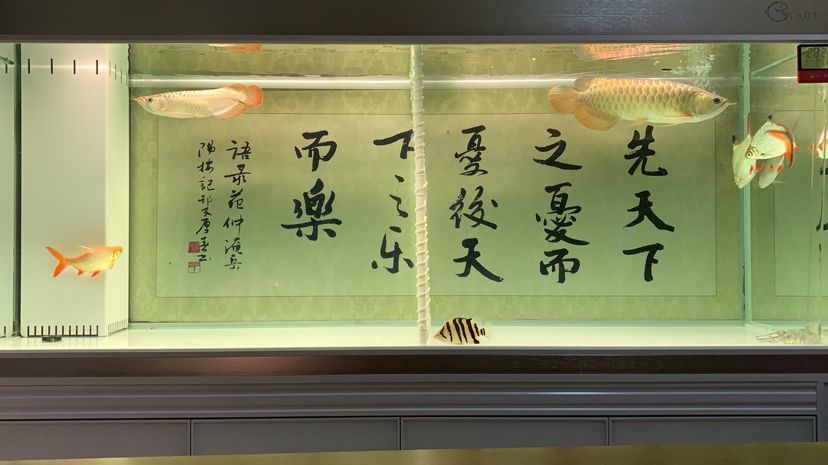 先天下
之憂而
憂後天
下之乐
而樂
语录范仲淹岳
陽楼記